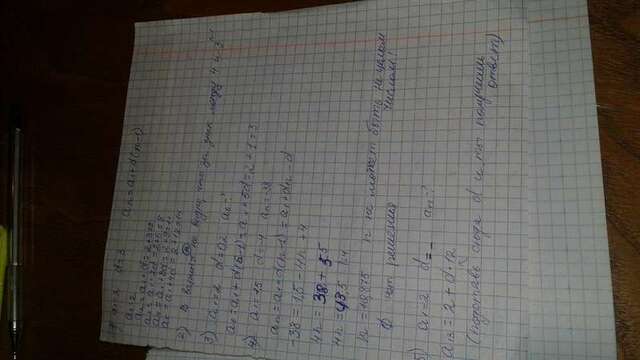 a₁=2 d=3 aₙ=a₁+d(n-1)
a₁=2
a₂=a₁+d=2+3=5
a₃=a₁+2d=2+6=8
a₄=a₁+3d=2+9=11
a₅=a₁+4d=2+12=14
2) В не видно, что за знак между 4 4-3
3) a₁=2 d=0.2 a₆=?
a₆=a₁+d(6-1)=a₁+5d=2+1=3
4) a₁=1.5 d=-4 aₙ=-38
aₙ=a₁+d(n-1)=a₁+dn-d
-38=1.5-4n+4
4n=38+5.5
4n=43.5
n=10.875 n не может быть не целым
числом!
нет решения
5) a₁=2 d=_ aₙ?
a₁₃=2+d·12
(подставь сюда d и ты получишь
ответ)